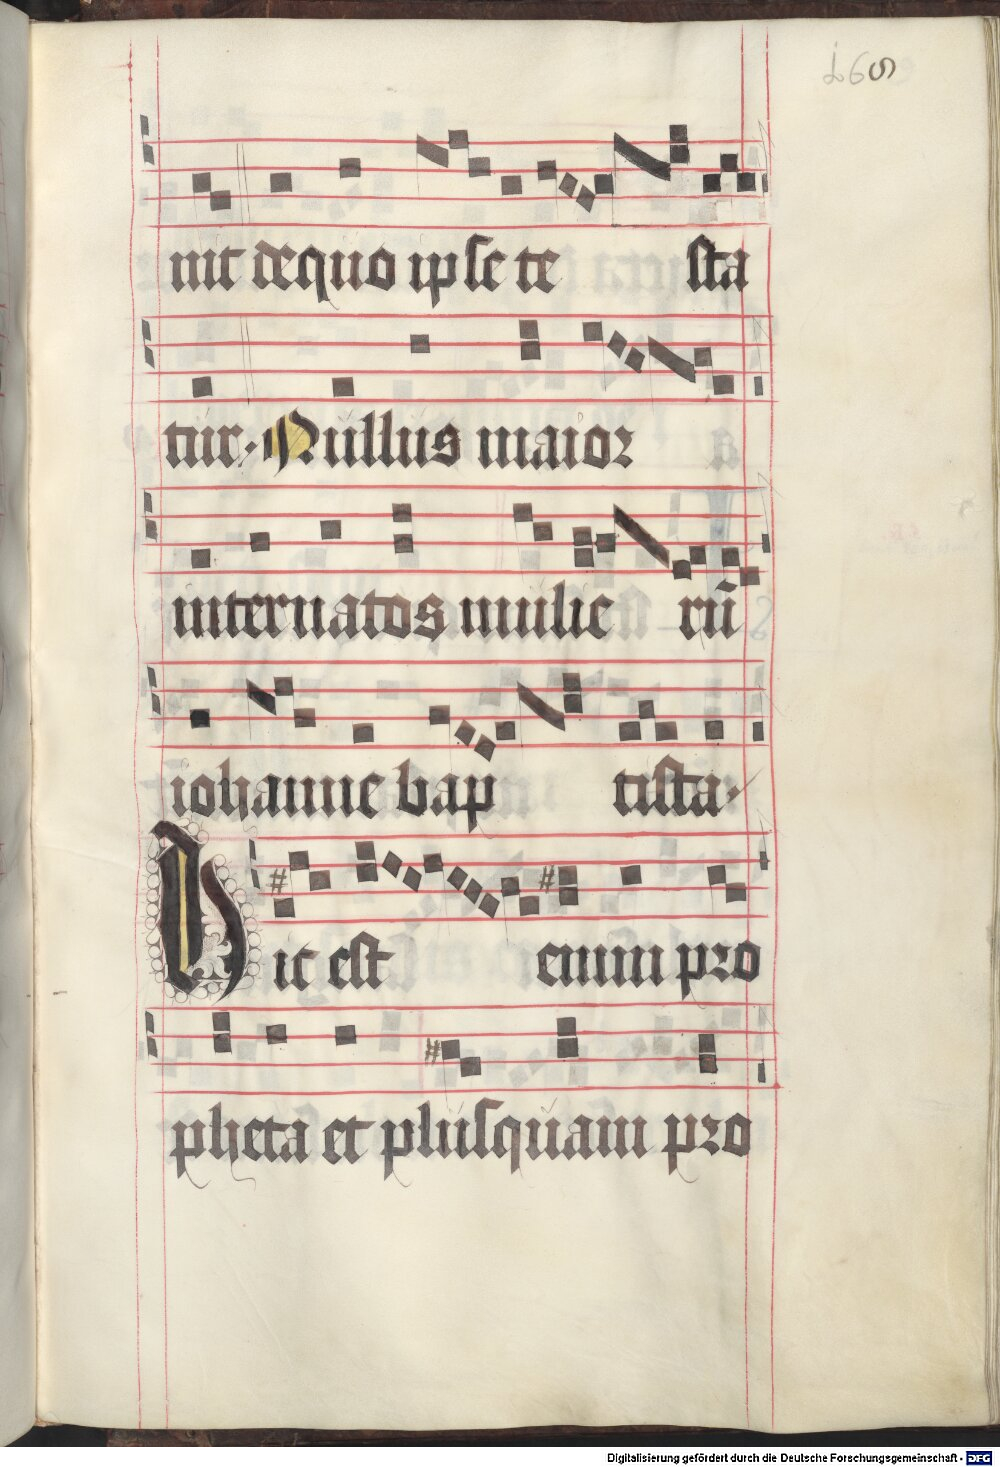 nit de quo ipse te sta
tur. Nullus maior
inter natos mulie rū
iohanne bap tista.
Hic est enim pro
pheta et plusquam pro
Digitalisierung gefördert durch die Deutsche Forschungsgemeinschaft - DFG